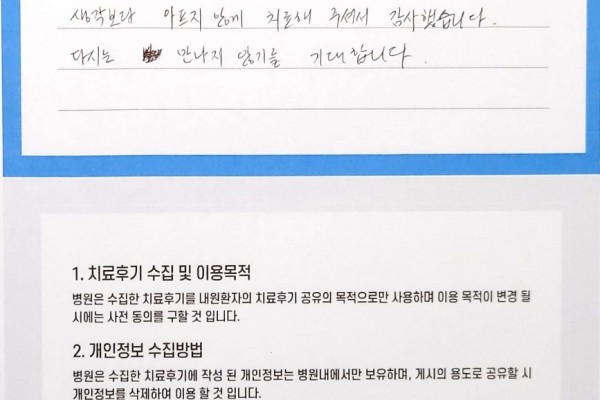 생각보다 아프지 않게 치료해 주셔서 감사했습니다.
다시는 만나지 않기를 기대합니다.
1. 치료후기 수집 및 이용목적
병원은 수집한 치료후기를 내원환자의 치료후기 공유의 목적으로만 사용하며 이용 목적이 변경 될
시에는 사전 동의를 구할 것 입니다.
2. 개인정보 수집방법
병원은 수집한 치료후기에 작성 된 개인정보는 병원내에서만 보유하며, 게시의 용도로 공유할 시
개인정보를 삭제하여 이용 할 것 입니다.